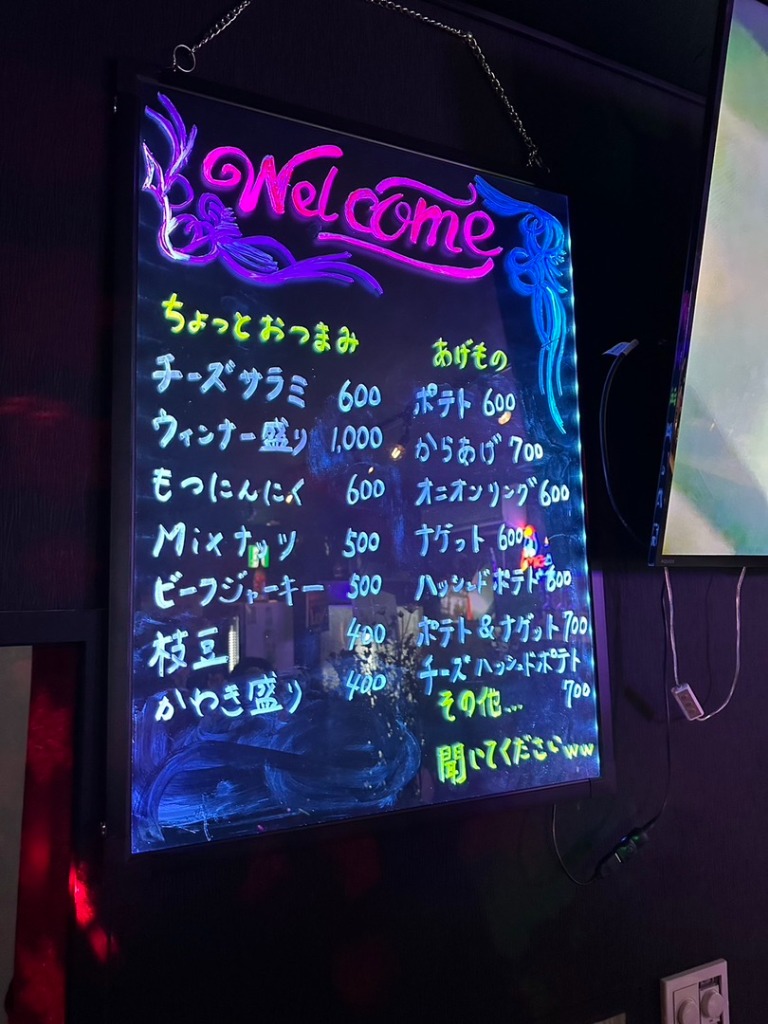 Welcome
ちょっとおつまみ
チーズサラミ 600
ウィンナー盛り 1,000
もつにんにく 600
Mixナッツ 500
ビーフジャーキー 500
枝豆 400
かわき盛り 400
あげもの
ポテト 600
からあげ 700
オニオンリング 600
ナゲット 600
ハッシュドポテト 600
ポテト&ナゲット 700
チーズハッシュドポテト
700
その他...
聞いてくださいww